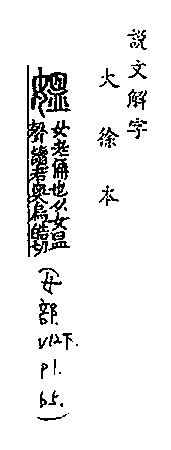 説文解字
大徐本
媼
女老偁也从女𥁕
聲讀若奧烏皓切
(女部 v12下. p1. b5.)